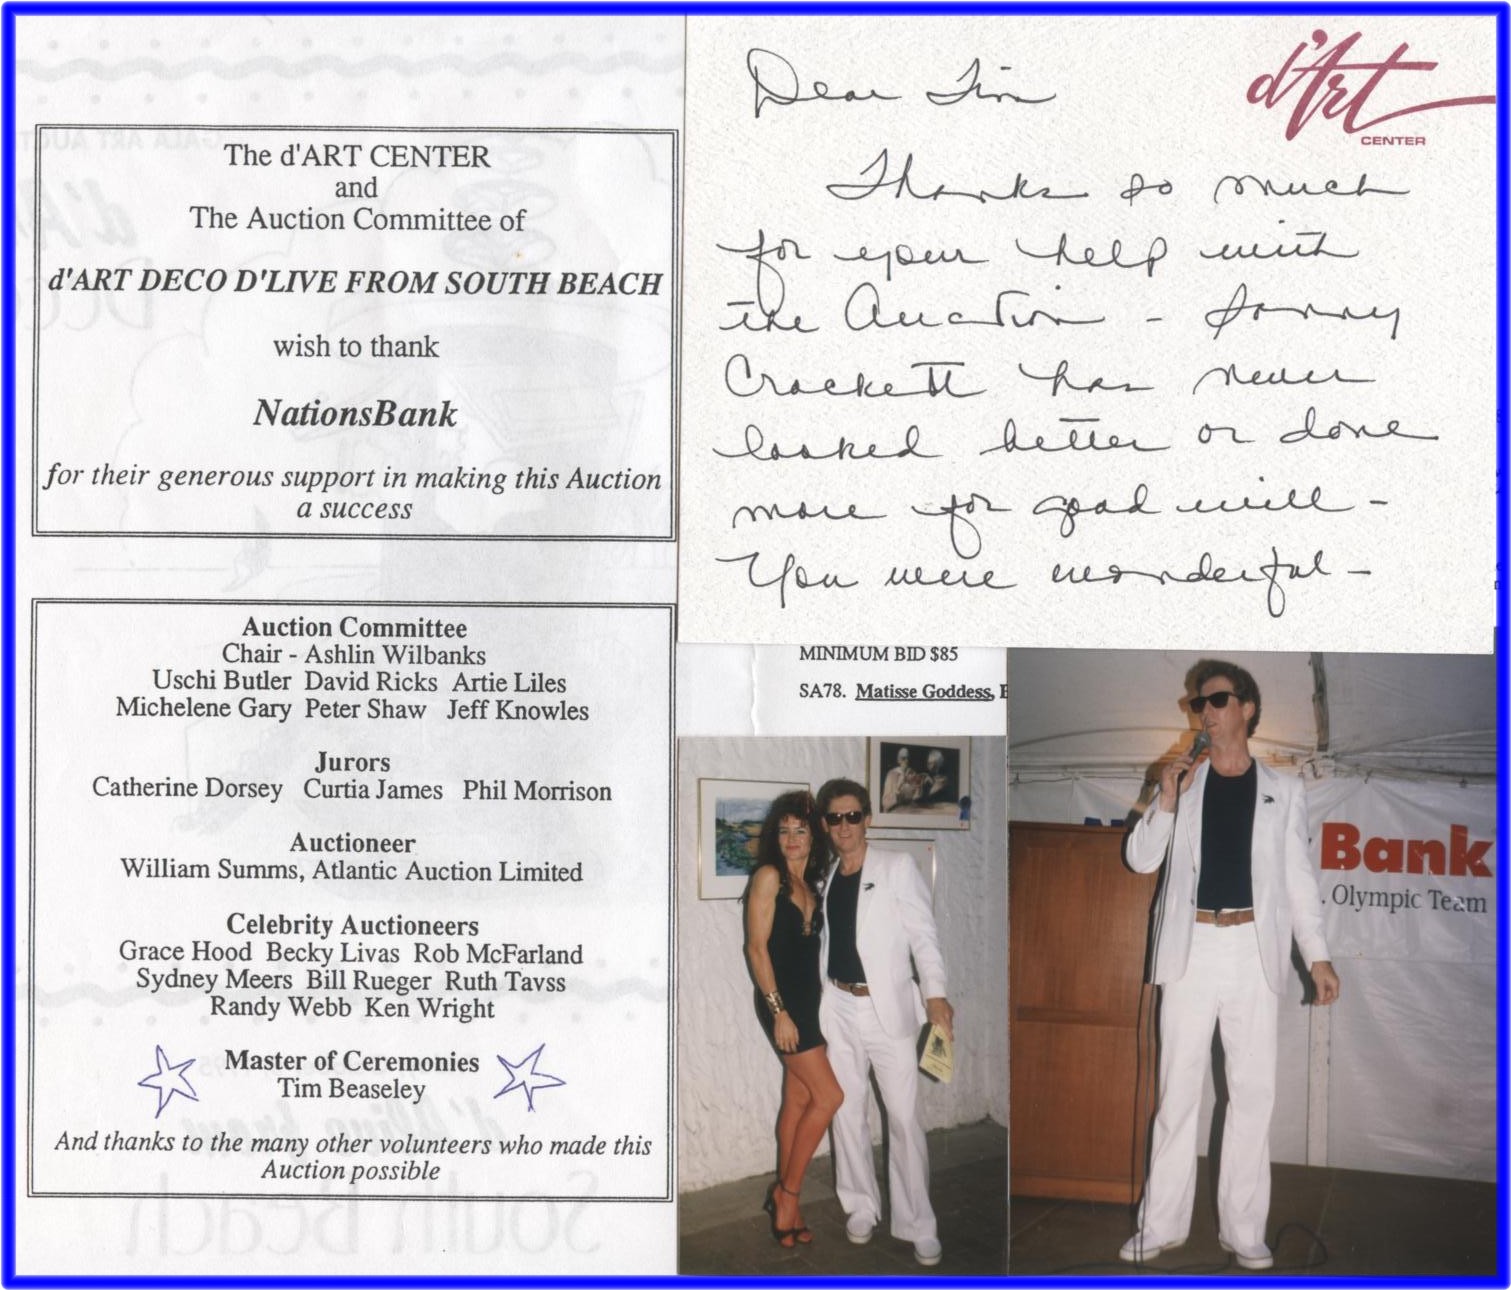 The d'ART CENTER
and
The Auction Committee of
d'ART DECO D'LIVE FROM SOUTH BEACH
wish to thank
NationsBank
for their generous support in making this Auction
a success
Auction Committee
Chair - Ashlin Wilbanks
Uschi Butler David Ricks Artie Liles
Michelene Gary Peter Shaw Jeff Knowles
Jurors
Catherine Dorsey Curtia James Phil Morrison
Auctioneer
William Summs, Atlantic Auction Limited
Celebrity Auctioneers
Grace Hood Becky Livas Rob McFarland
Sydney Meers Bill Rueger Ruth Tavss
Randy Webb Ken Wright
Master of Ceremonies
Tim Beaseley
And thanks to the many other volunteers who made this
Auction possible
d'Art
CENTER
Dear Tim
Thanks so much
for your help with
the Auction - Sonny
Crockett has never
looked better or done
more for good will -
You were wonderful -
MINIMUM BID $85
SA78. Matisse Goddess,
Bank
. Olympic Team
South Beach